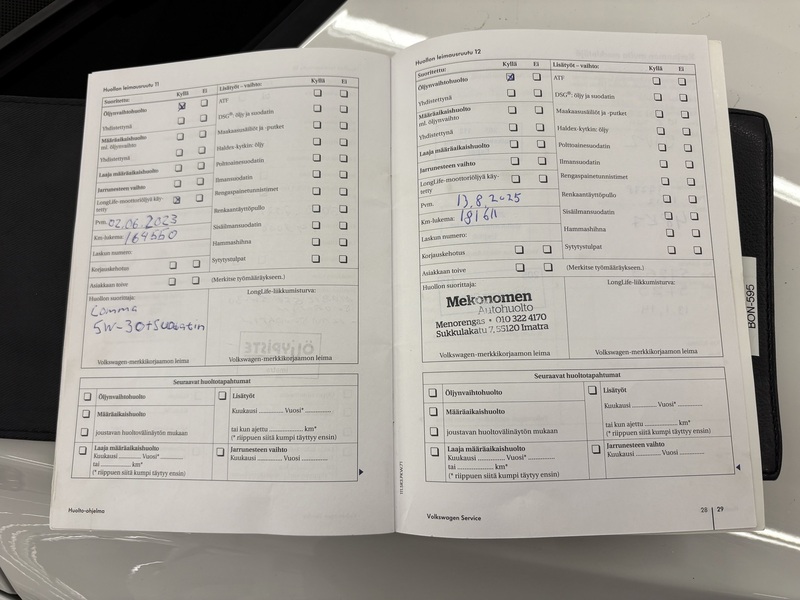 Huollon leimausruutu 11
Suoritettu: Kyllä Ei
Öljynvaihtohuolto
Yhdistettynä
Määräaikaishuolto
ml. öljynvaihto
Yhdistettynä
Laaja määräaikaishuolto
Jarrunesteen vaihto
LongLife-moottoriöljyä käy-
tetty
Pvm. 02.06.2023
Km-lukema: 164550
Laskun numero:
Korjauskehotus
Asiakkaan toive
Lisätyöt – vaihto: Kyllä Ei
ATF
DSG®: öljy ja suodatin
Maakaasusäiliöt ja -putket
Haldex-kytkin: öljy
Polttoainesuodatin
Ilmansuodatin
Rengaspainetunnistimet
Renkaantäyttöpullo
Sisäilmansuodatin
Hammashihna
Sytytystulpat
(Merkitse työmääräykseen.)
Huollon suorittaja:
Comma
5W-30+Suodatin
LongLife-liikkumisturva:
ÖLJYPISTE
Volkswagen-merkkikorjaamon leima
Volkswagen-merkkikorjaamon leima
Seuraavat huoltotapahtumat
Öljynvaihtohuolto
Määräaikaishuolto
joustavan huoltovälinäytön mukaan
Lisätyöt
Kuukausi ............ Vuosi* ............
tai kun ajettu ............ km*
(* riippuen siitä kumpi täyttyy ensin)
Laaja määräaikaishuolto
Kuukausi ............ Vuosi* ............
tai ............ km*
(* riippuen siitä kumpi täyttyy ensin)
Jarrunesteen vaihto
Kuukausi ............ Vuosi ............
Huolto-ohjelma
Huollon leimausruutu 12
Suoritettu: Kyllä Ei
Öljynvaihtohuolto
Yhdistettynä
Määräaikaishuolto
ml. öljynvaihto
Yhdistettynä
Laaja määräaikaishuolto
Jarrunesteen vaihto
LongLife-moottoriöljyä käy-
tetty
Pvm. 13.8.2025
Km-lukema: 181611
Laskun numero:
Korjauskehotus
Asiakkaan toive
Lisätyöt – vaihto: Kyllä Ei
ATF
DSG®: öljy ja suodatin
Maakaasusäiliöt ja -putket
Haldex-kytkin: öljy
Polttoainesuodatin
Ilmansuodatin
Rengaspainetunnistimet
Renkaantäyttöpullo
Sisäilmansuodatin
Hammashihna
Sytytystulpat
(Merkitse työmääräykseen.)
Huollon suorittaja:
Mekonomen
Autohuolto
Menorengas • 010 322 4170
Sukkulakatu 7, 55120 Imatra
LongLife-liikkumisturva:
Volkswagen-merkkikorjaamon leima
Volkswagen-merkkikorjaamon leima
Seuraavat huoltotapahtumat
Öljynvaihtohuolto
Määräaikaishuolto
joustavan huoltovälinäytön mukaan
Lisätyöt
Kuukausi ............ Vuosi* ............
tai kun ajettu ............ km*
(* riippuen siitä kumpi täyttyy ensin)
Laaja määräaikaishuolto
Kuukausi ............ Vuosi* ............
tai ............ km*
(* riippuen siitä kumpi täyttyy ensin)
Jarrunesteen vaihto
Kuukausi ............ Vuosi ............
Volkswagen Service
28 29
BON-595